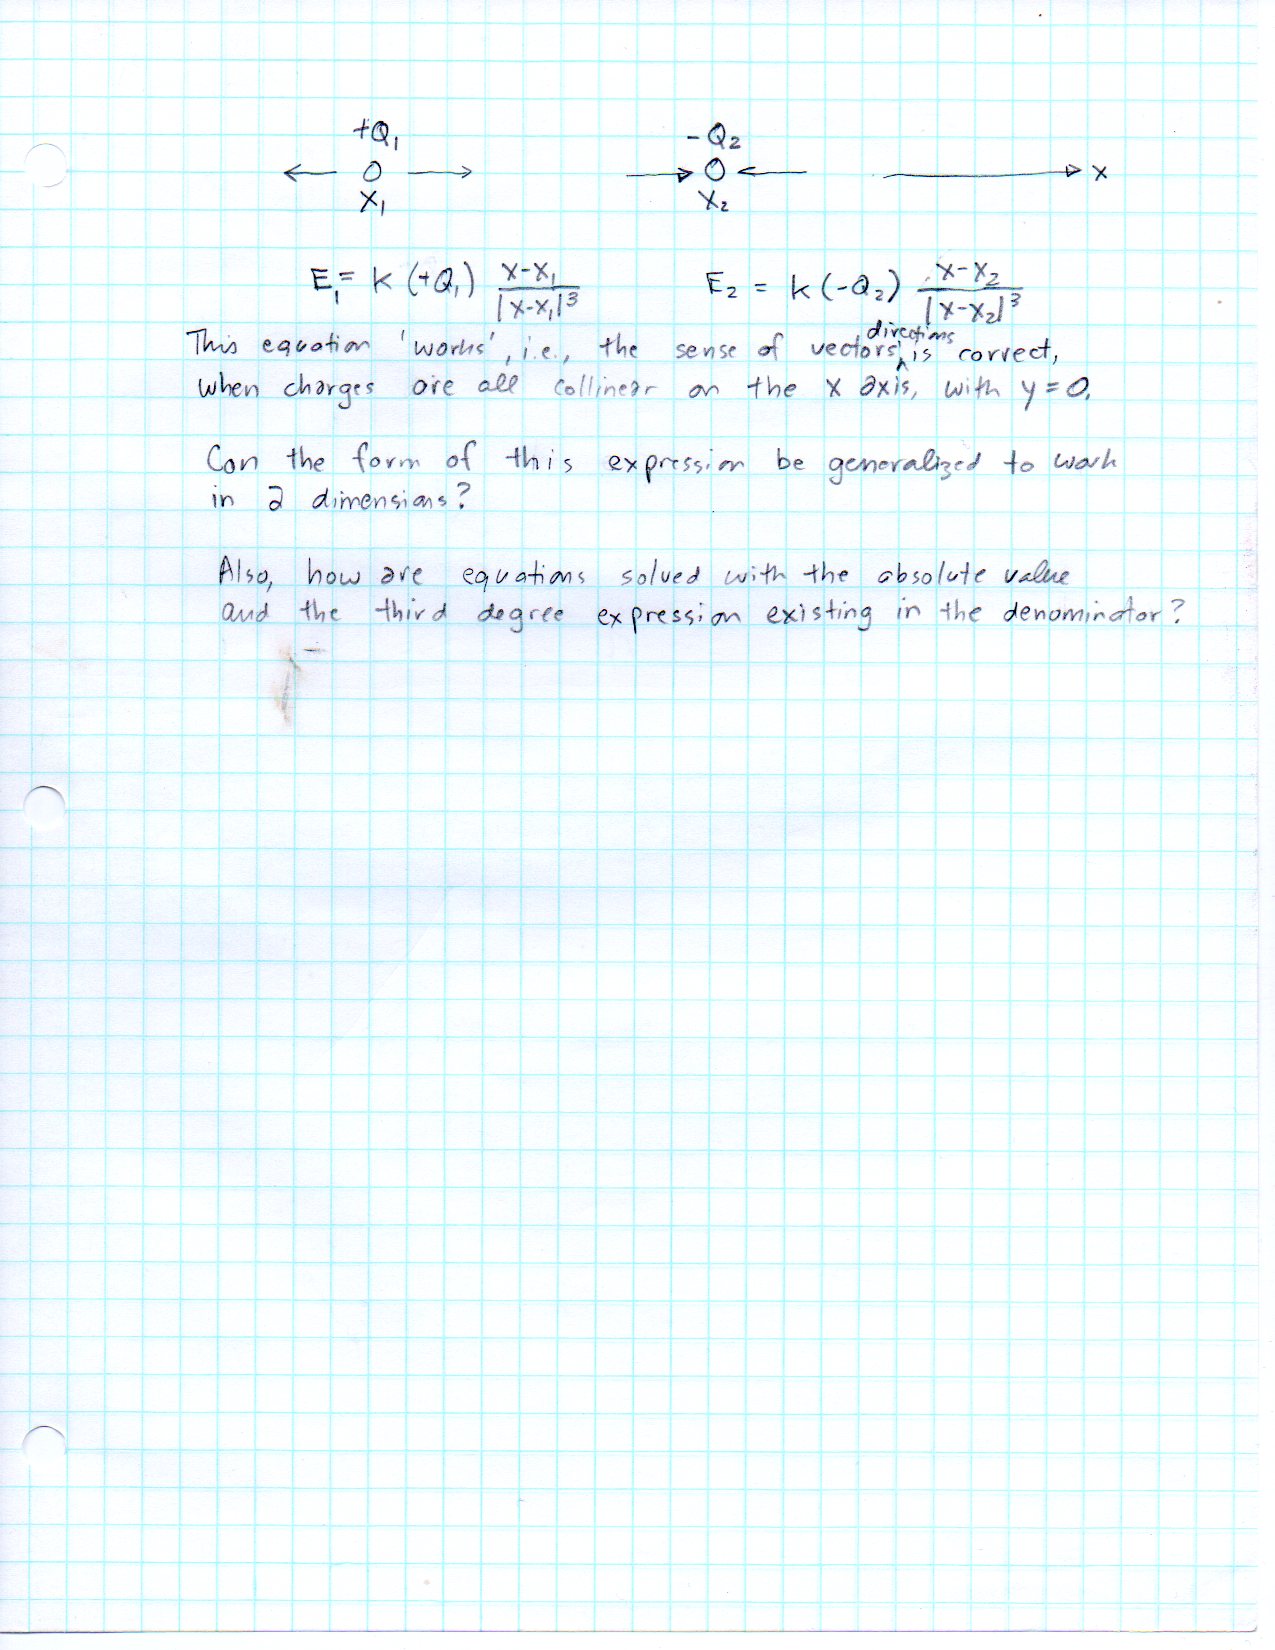 +Q₁ -Q₂
x
X₁ X₂
E₁ = k (+Q₁) x-x₁ / |x-x₁|³ E₂ = k (-Q₂) x-x₂ / |x-x₂|³
directions
This equation 'works', i.e., the sense of vectors' ^ is correct,
when charges are all collinear on the x axis, with y = 0.
Can the form of this expression be generalized to work
in 2 dimensions?
Also, how are equations solved with the absolute value
and the third degree expression existing in the denominator?